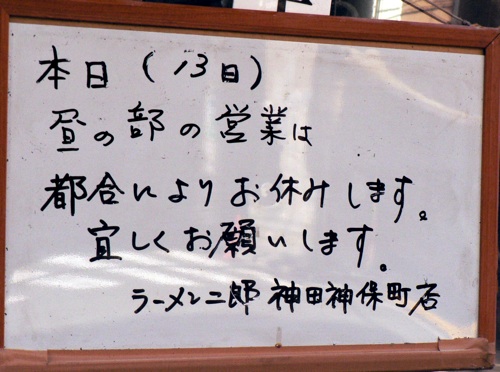 本日（13日）
昼の部の営業は
都合によりお休みします。
宜しくお願いします。
ラーメン二郎 神田神保町店